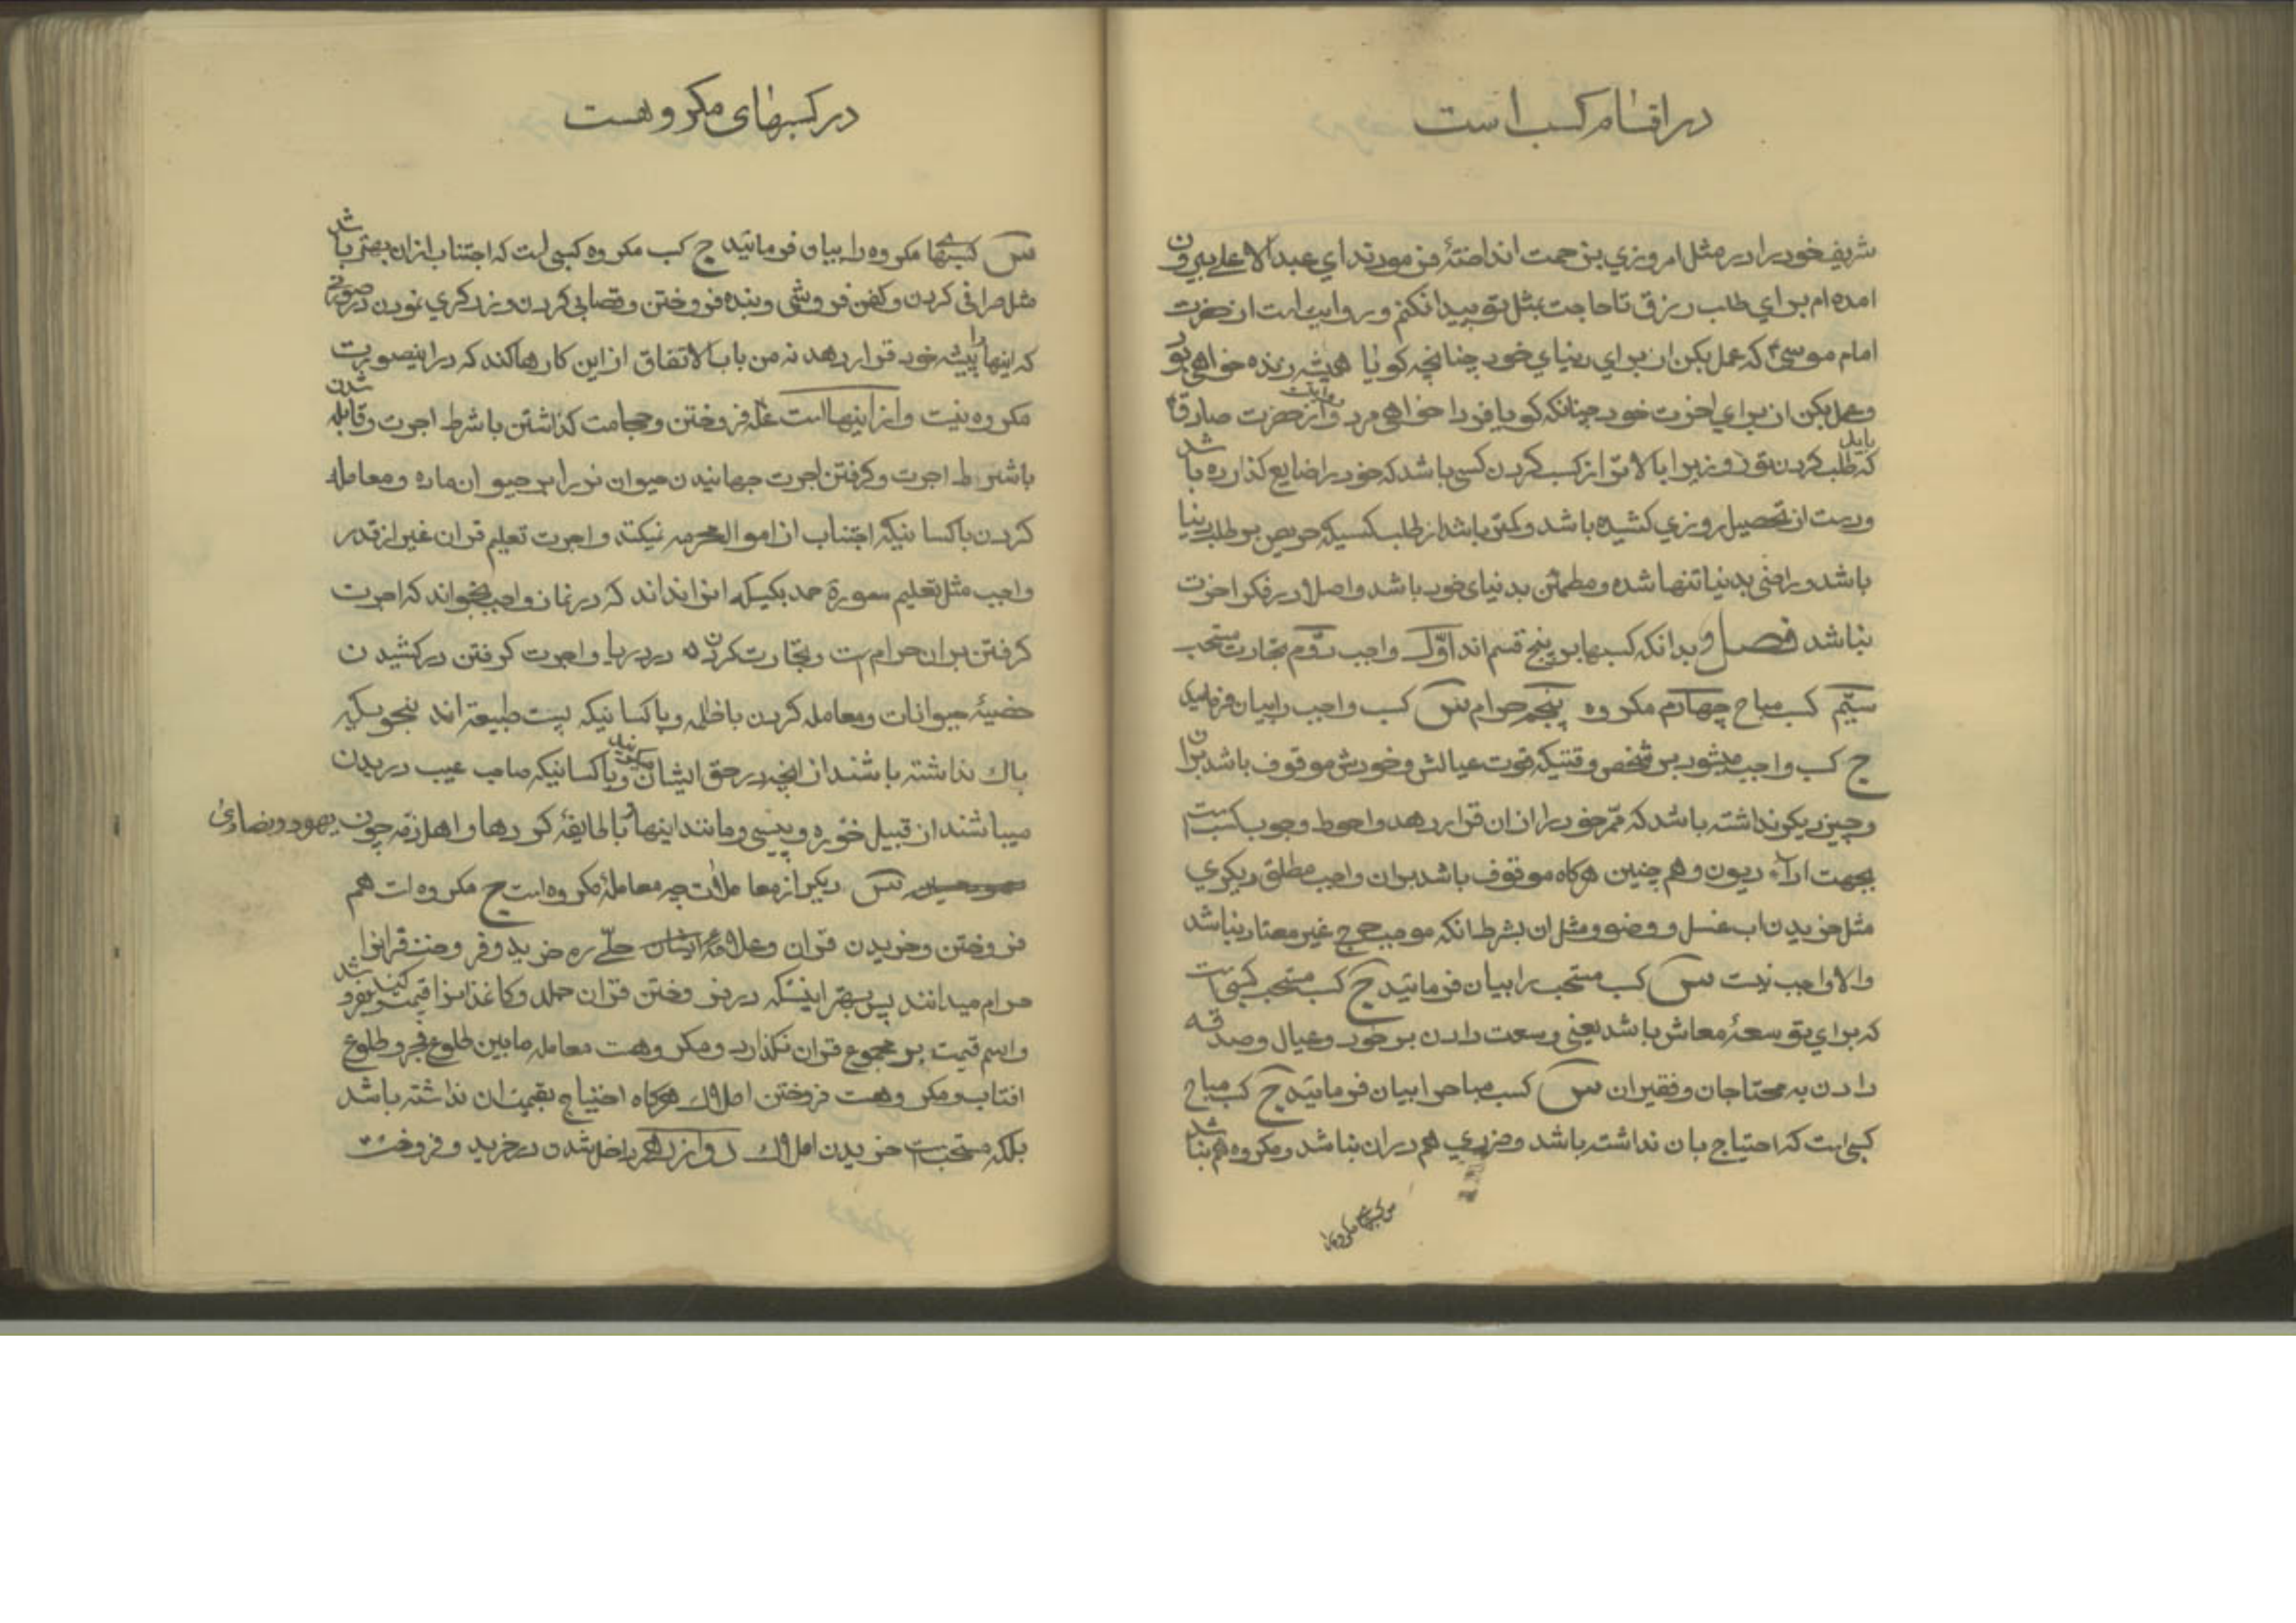 در اقسام کسب است
شریف خود را در مثل این روزی بزحمت انداخته فرمودند ای عبدالاعلی بیرون
امده ام برای طلب رزق تا حاجت بمثل تو پیدا نکنم و روایت است از حضرت
امام موسی ع که عمل بکن از برای دنیای خود چنانچه کویا همیشه زنده خواهی بود
و عمل بکن از برای اخرت خود چنانکه کویا فردا خواهی مرد و روایت از حضرت صادق ع
که باید طلب کردن تو روزیرا بالاتر از کسب کردن کسی باشد که خود را ضایع کذارده باشد
و دست از تحصیل روزی کشیده باشد و کمتر باشد از طلب کسیکه حریص بر طلب دنیا
باشد و راضی بدنیا تنها شده و مطمئن بدنیای خود باشد و اصلا در فکر اخرت
نباشد فصل و بدانکه کسبها بر پنج قسم اند اوّل واجب دوّم تجارت مستحب
سیّم کسب مباح چهارم مکروه پنجم حرام س کسب واجب را بیان فرمایید
ج کسب واجب میشود بر شخص وقتیکه قوت عیالش و خودش موقوف باشد بران
و چیز دیکر نداشته باشد که ممّر خود را از ان قرار دهد و احوط وجوب کسب است
بجهت اداء دیون و هم چنین هرکاه موقوف باشد بران واجب مطلق دیکری
مثل خریدن اب غسل و وضو و مثل ان بشرط انکه موجب حرج غیر معتاد نباشد
والا واجب نیست س کسب مستحب را بیان فرمائید ج کسب مستحب کسبی است
که برای توسعۀ معاش باشد یعنی وسعت دادن بر خود و عیال و صدقه
دادن به محتاجان و فقیران س کسب مباح را بیان فرمائید ج کسب مباح
کسبی است که احتیاج بان نداشته باشد و ضرری هم در ان نباشد و مکروه هم نباشد
س کسبهای مکروه را
در کسبهای مکروهست
س کسبهای مکروه را بیان فرمائید ج کسب مکروه کسبی است که اجتناب از ان بهتر باشد
مثل صرافی کردن و کفن فروشی و بنده فروختن و قصابی کردن و زرکری نمودن در صورتی
که اینها را پیشه خود قرار دهد نه من باب الاتفاق از این کارها کند که در اینصورت
مکروه نیست و از اینها است غله فروختن و حجامت کذاشتن با شرط اجرت و قابله شدن
با شرط اجرت و کرفتن اجرت جهانیدن حیوان نر را بر حیوان ماده و معامله
کردن با کسانیکه اجتناب از اموال محرمه نمیکنند و اجرت تعلیم قران غیر از قدر
واجب مثل تعلیم سورۀ حمد بکسیکه انرا نداند که در نماز واجب بخواند که اجرت
کرفتن بران حرام است و تجارت کردن در دریا و اجرت کرفتن در کشیدن
خصیۀ حیوانات و معامله کردن با ظلمه و با کسانیکه پست طبیعة اند بنحویکه
باک نداشته باشند از انچه در حق ایشان میکویند و با کسانیکه صاحب عیب در بدن
میباشند از قبیل خوره و پیسی و مانند اینها و با طایفۀ کوردها و اهل ذمه چون یهود و نصاری
س دیکر از معاملات چه معاملۀ مکروه است ج مکروه است هم
فروختن و خریدن قران و علماء حلّے ره خرید و فروخت قرانرا
حرام میدانند پس بهتر اینستکه در فروختن قران جلد و کاغذ انرا قیمت کند
و اسم قیمت بر مجموع قران نکذارد و مکروهست معامله مابین طلوع فجر و طلوع
افتاب و مکروهست فروختن املاک هرکاه احتیاج بقیمت ان نداشته باشد
بلکه مستحب است خریدن املاک دوازدهم داخل شدن در خرید و فروخت